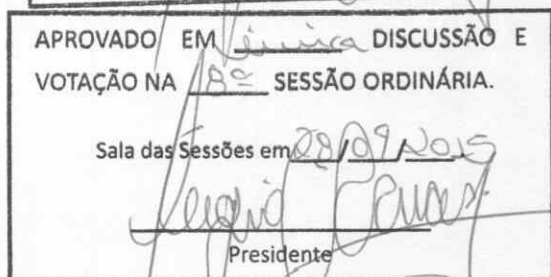 APROVADO EM única DISCUSSÃO E
VOTAÇÃO NA 8ª SESSÃO ORDINÁRIA.
Sala das Sessões em 28/09/2015
Presidente